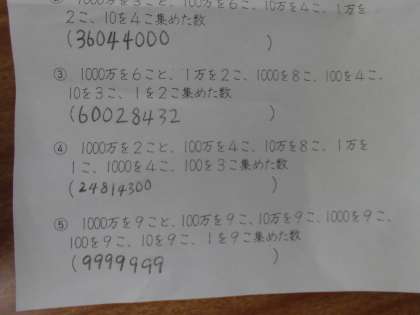 ② 1000万を3こと、100万を6こ、10万を4こ、1万を
2こ、10を4こ集めた数
(36044000 )
③ 1000万を6こと、1万を2こ、1000を8こ、100を4こ、
10を3こ、1を2こ集めた数
(60028432 )
④ 1000万を2こと、100万を4こ、10万を8こ、1万を
1こ、1000を4こ、100を3こ集めた数
(24814300 )
⑤ 1000万を9こと、100万を9こ、10万を9こ、1000を9こ、
100を9こ、10を9こ、1を9こ集めた数
(9999999 )